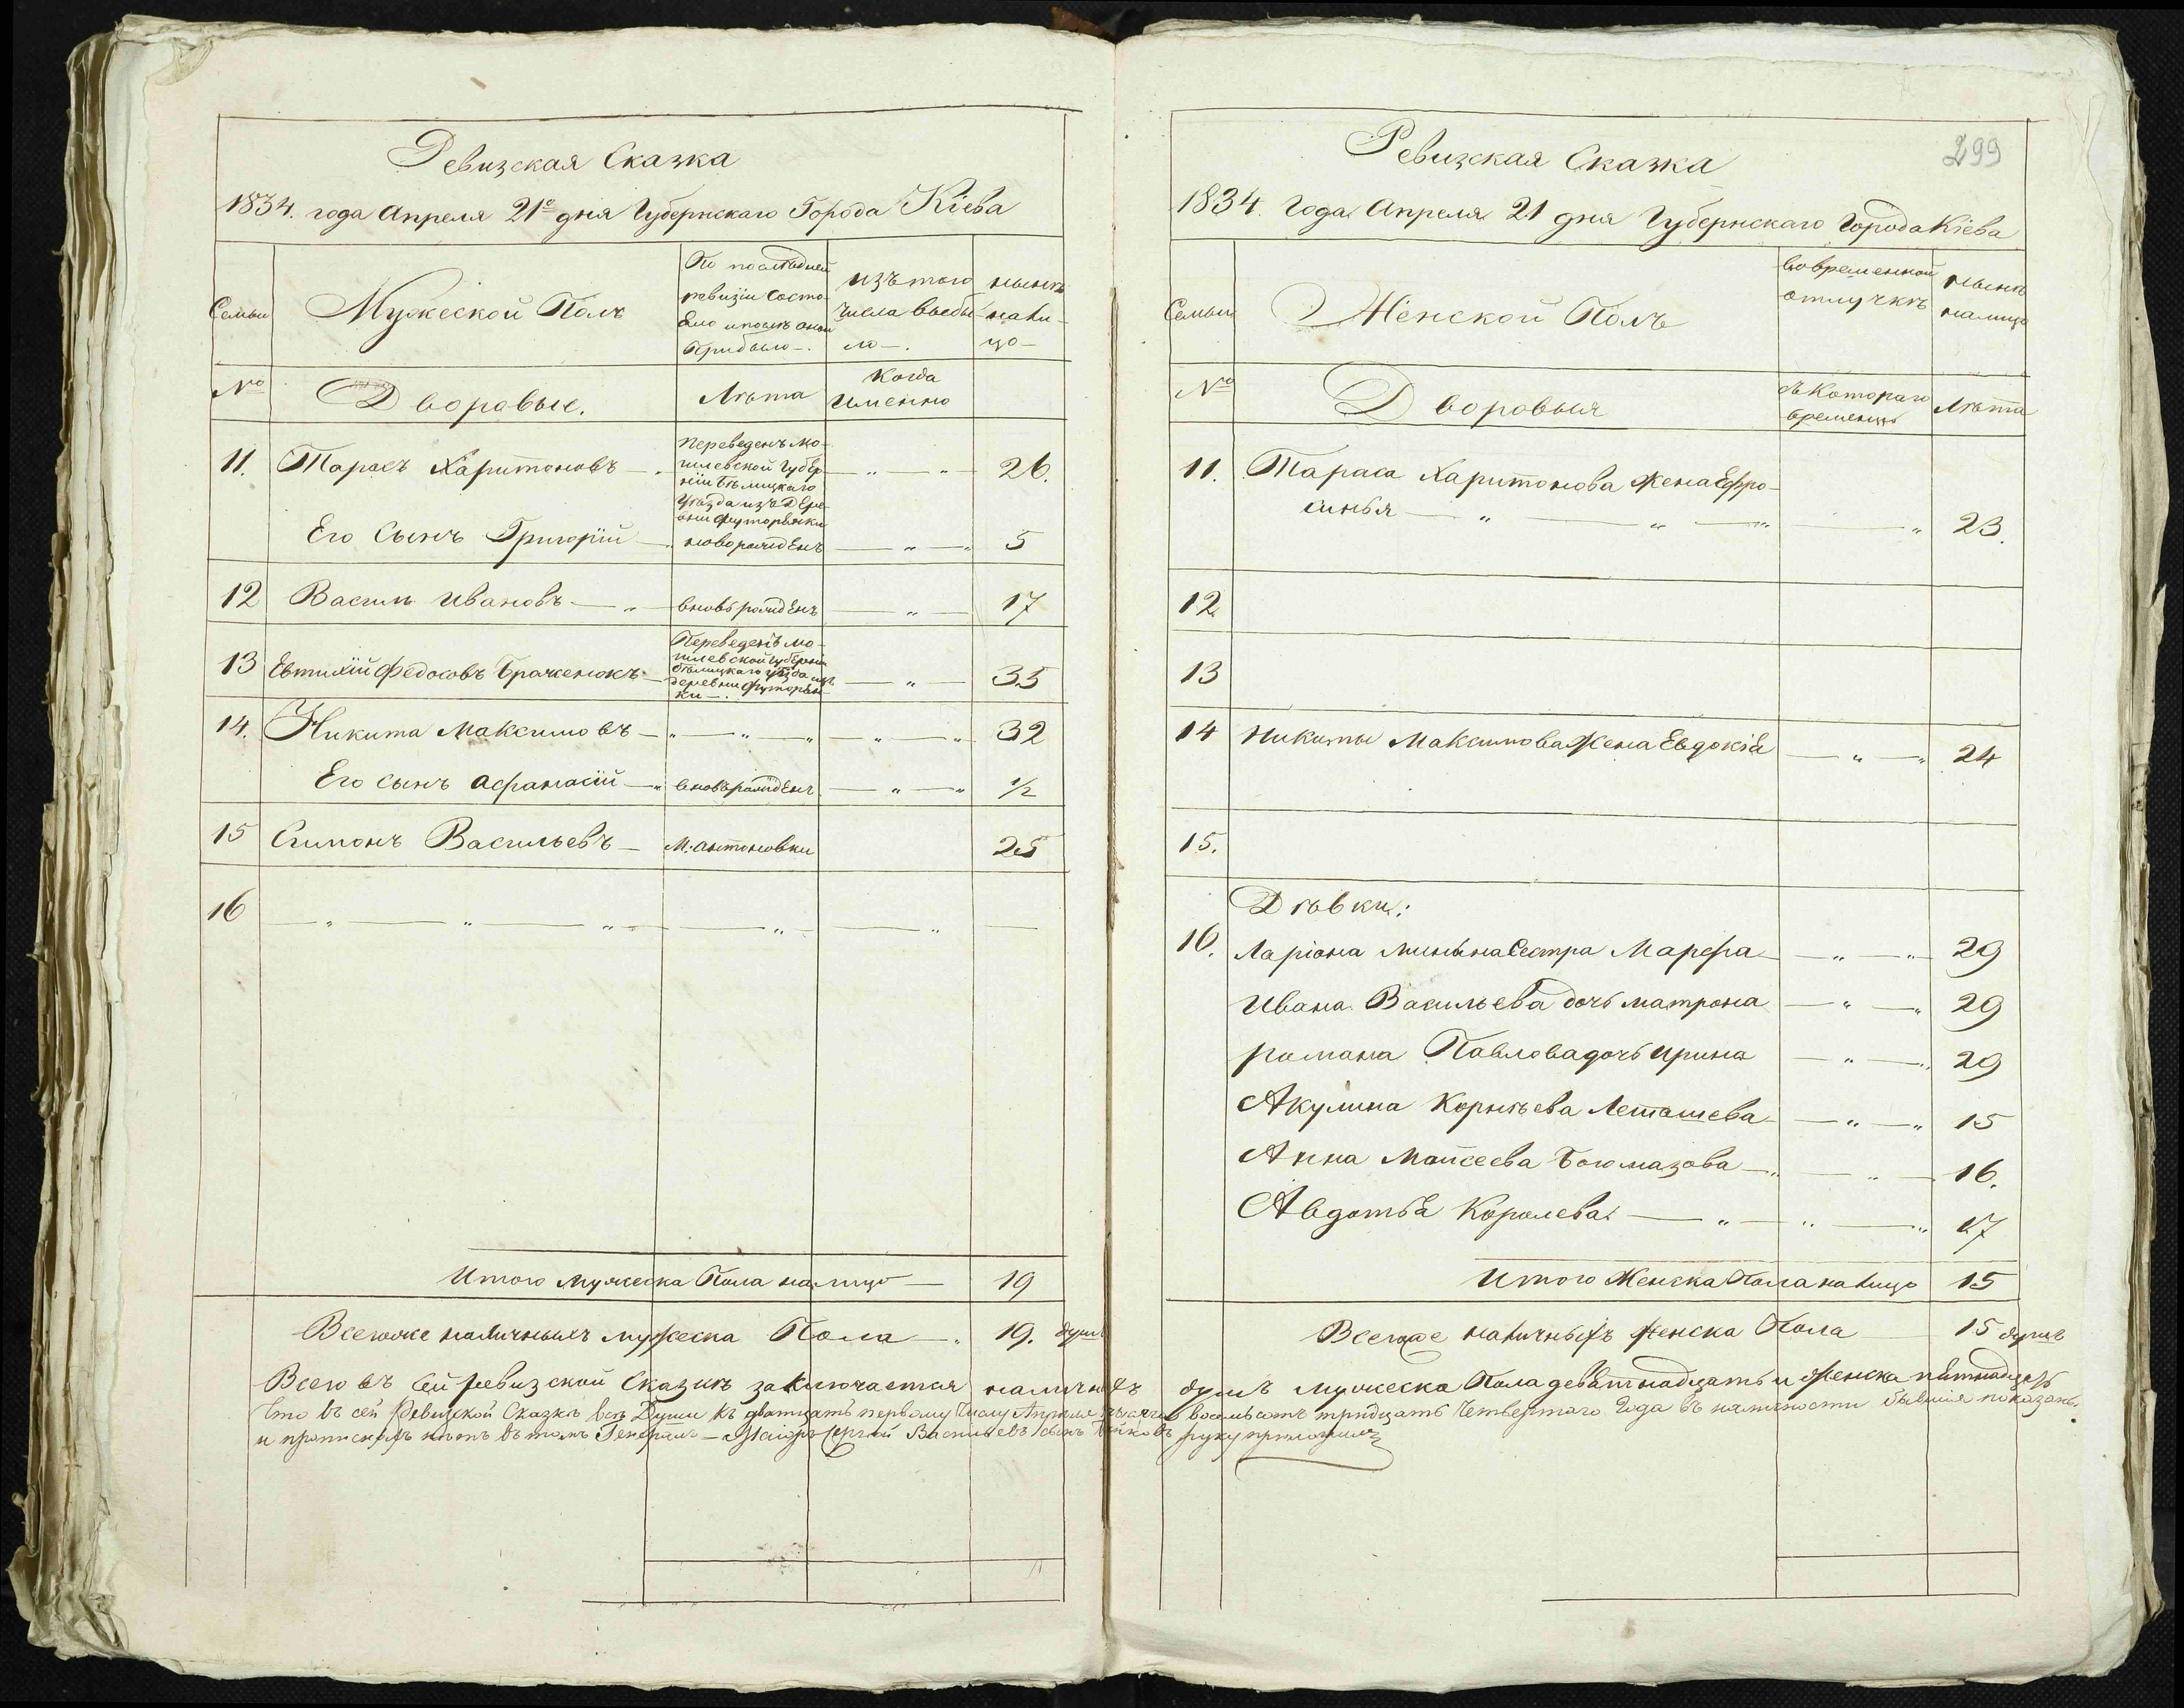 Ревизская Сказка
1834. года Апреля 21º дня Губернскаго Города Кіева
Семьи
Мужеской Полъ
По последней
ревизіи состо-
яло и послѣ оной
Прибыло —.
изъ того
числа выбы-
ло —.
нынѣ
нали-
цо —
№
Дворовые.
Лѣта
Когда
Именно
11. Тарасъ Харитоновъ
Переведенъ Мо-
гилевской Губер-
ніи Бѣлицкаго
Уѣзда изъ Дере-
вни Футорянки
26.
Его Сынъ Григорій новорожденъ 5
12 Василъ Ивановъ вновь рожденъ 17
13 Евтихій Федосовъ Браженокъ
Переведенъ Мо-
гилевской Губерніи
Бѣлицкаго уѣзда изъ
деревни Футорян-
ки —.
35
14. Никита Максимовъ 32
Его сынъ Афанасій вновь рожденъ ½
15 Симонъ Васильевъ М: Антоновки 25
16
Итого Мужеска Пола налицо — 19
Всегоже наличныхъ мужеска Пола —. 19. душъ
Всего въ сей ревизской Сказкѣ заключается наличныхъ
Что въ сей Ревизской Сказкѣ всѣ Души къ дватцать первому числу Апреля тысяча
и прописныхъ нѣтъ въ томъ Генералъ-Маіоръ Сергѣй Васильевъ сынъ
Ревизская Сказка
299
1834. Года Апреля 21 дня Губернскаго Города Кіева
Семьи
Женской Полъ
Вовременной
отлучкѣ
нынѣ
налицо
№
Дворовыя
съ Котораго
времени
Лѣта
11. Тараса Харитонова жена Ефро-
синья 23.
12
13
14 Никиты Максимова Жена Евдокіа 24
15.
Дѣвки:
16. Ларіона Минына Сестра Марфа 29
Ивана Васильева дочь Матрона 29
Романа Павлова дочь Ирина 29
Акулина Корнѣева Леташева 15
Анна Моисеева Богомазова 16.
Авдотья Королева 17
Итого Женска Пола налицо 15
Всегоже наличныхъ женска Пола 15 душъ
душъ мужеска Пола девятнадцать и женска пятнадцать
восемьсотъ тридцать четвертаго Года въ наличности бывшія показаны
руку приложилъ